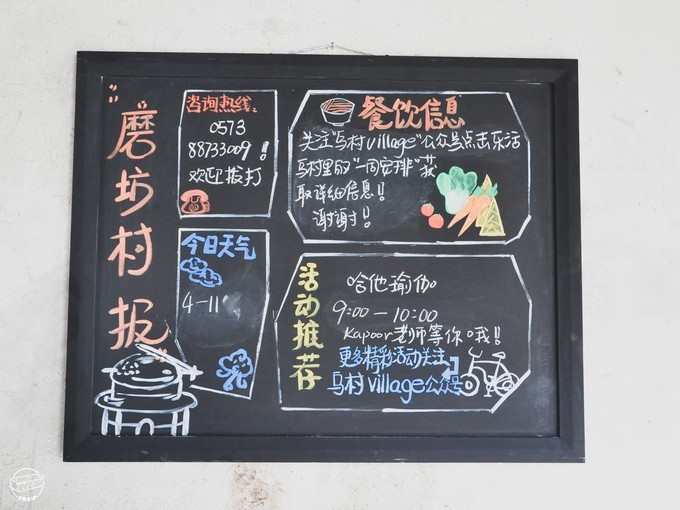 磨坊村报
咨询热线:
0573
88733009！
欢迎拨打
今日天气
4-11°
餐饮信息
关注"乌村village"公众号点击乐活
乌村里的"一周安排"获
取详细信息！
谢谢！
活动推荐
哈他瑜伽
9:00—10:00
Kapoor老师等你哦！
更多精彩活动关注
乌村village公众号